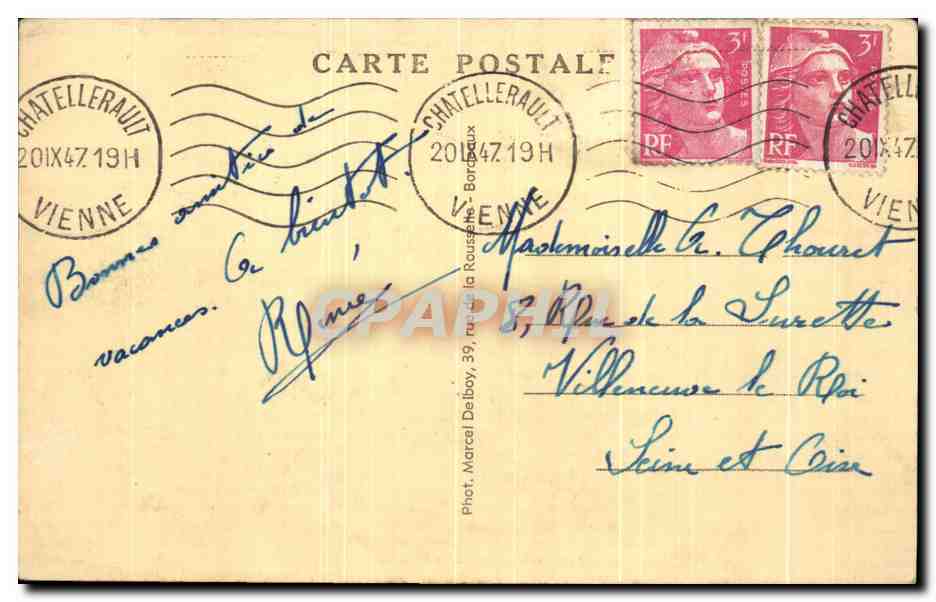 CARTE POSTALE
3F
3F
POSTES
RF
RF
CHATELLERAULT
20 IX 47. 19 H
VIENNE
CHATELLERAULT
20 IX 47. 19 H
VIENNE
CHATELLE
20 IX 47.
VIEN
Bonnes amitiés de
vacances. A bientot.
Mademoiselle A. Thouret
8, Rue de la Surette
Villeneuve le Roi
Seine et Oise
Phot. Marcel Delboy, 39, rue de la Rousselle - Bordeaux
CPAPHIL